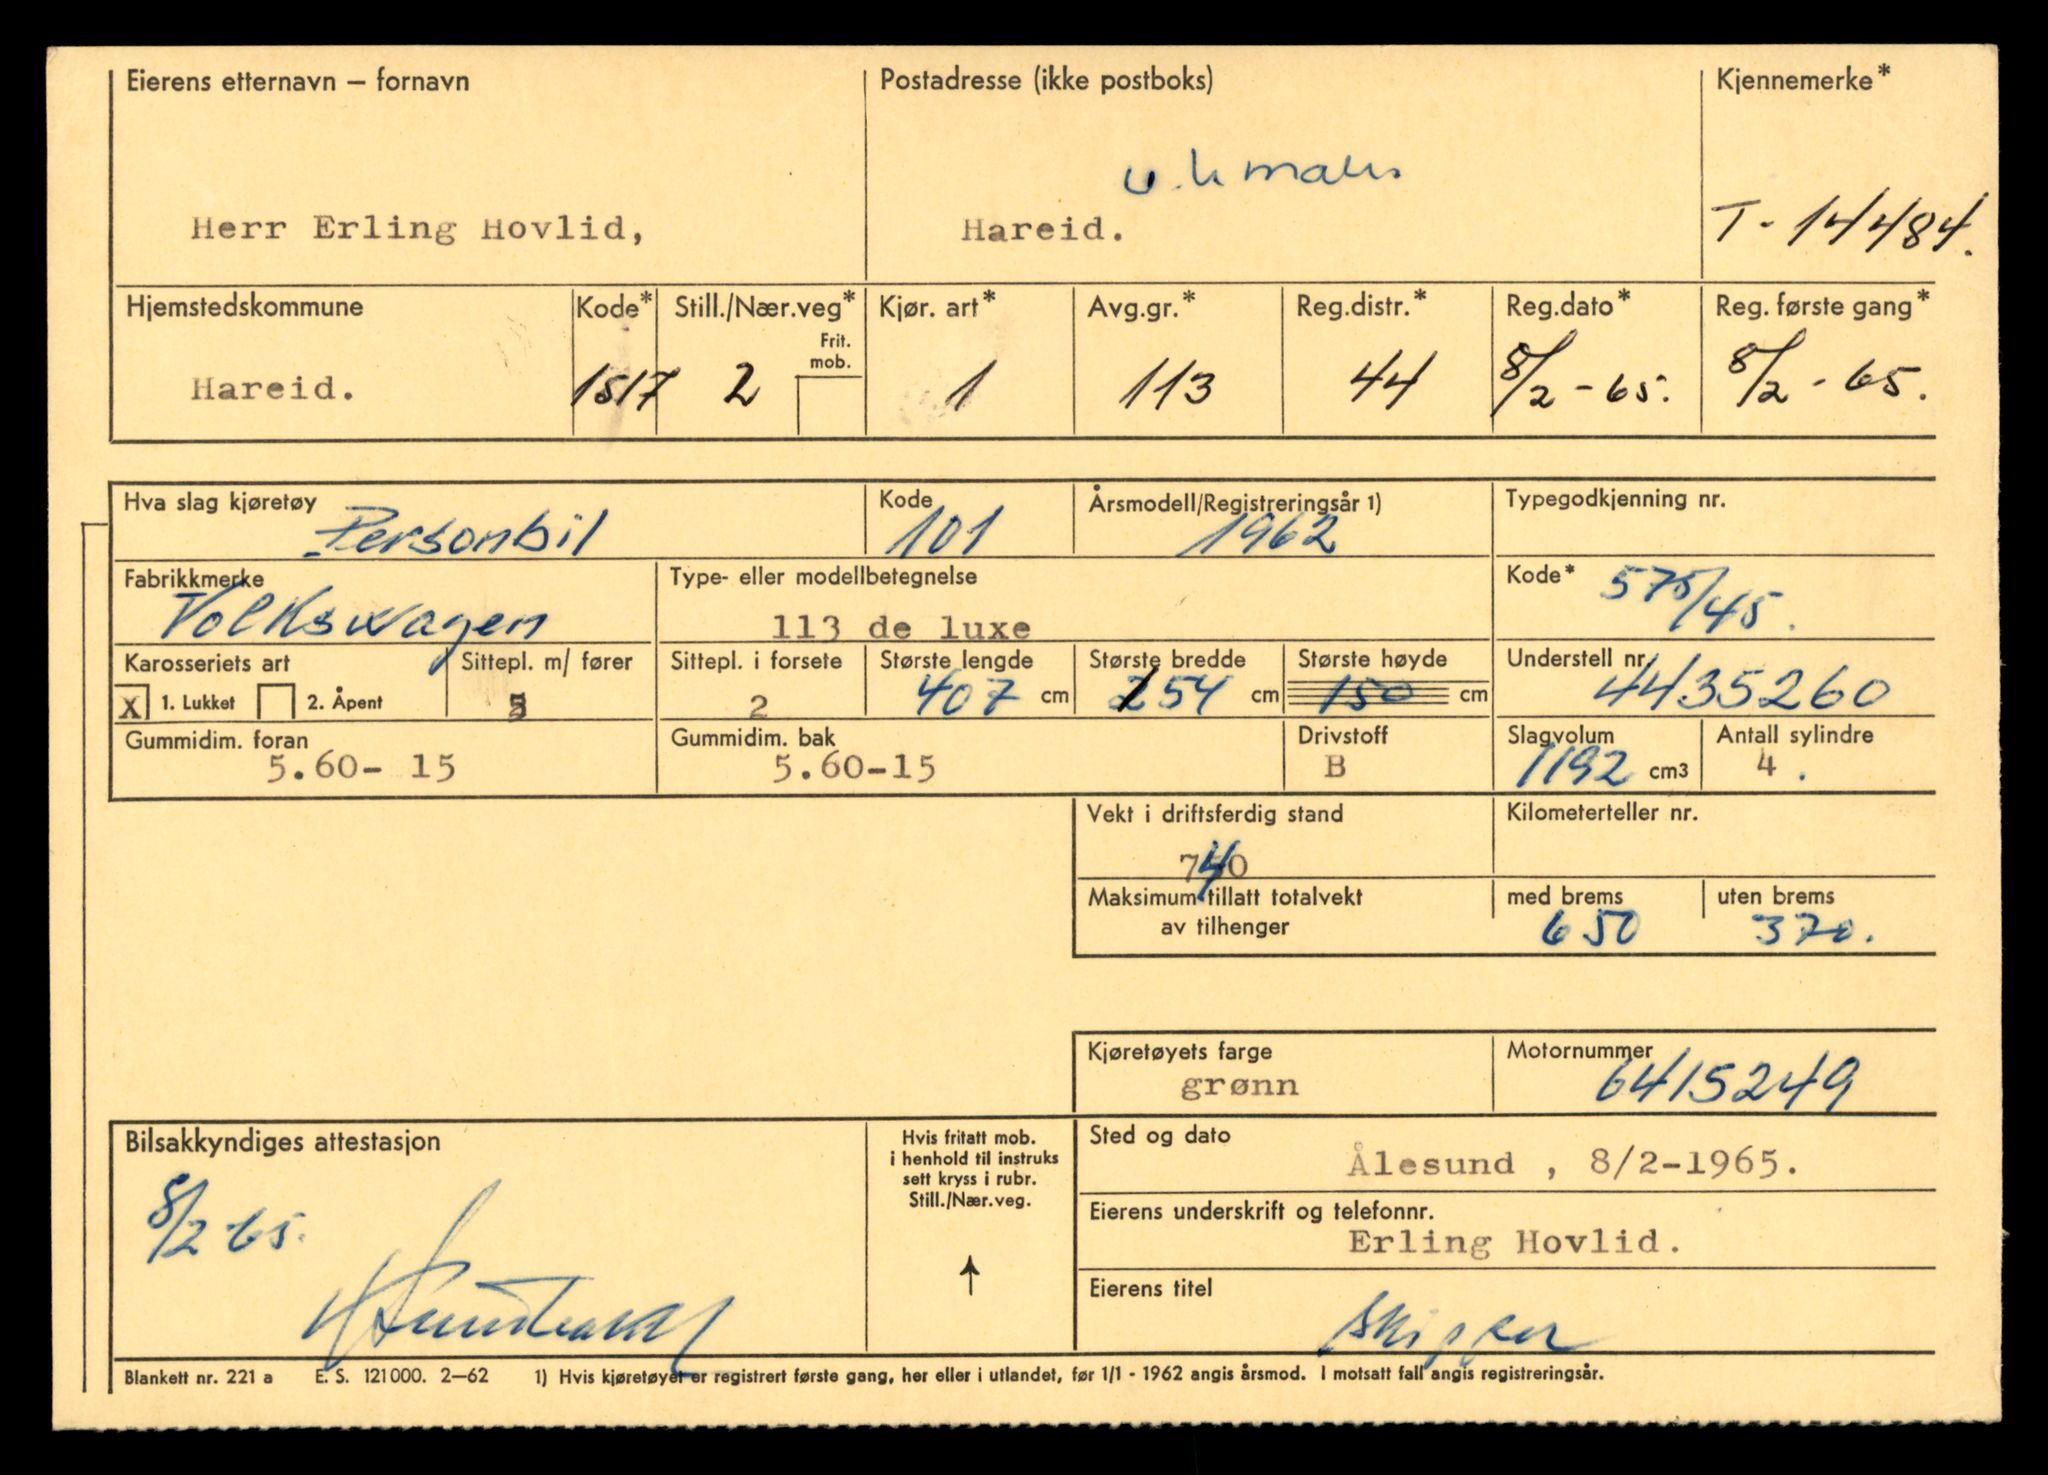 Eierens etternavn – fornavn
Postadresse (ikke postboks)
Kjennemerke*
Herr Erling Hovlid,
Hareid.
T-14484.
Hjemstedskommune
Kode*
Still./Nær.veg*
Frit. mob.
Kjør. art*
Avg.gr.*
Reg.distr.*
Reg.dato*
Reg. første gang*
Hareid.
1517
2
1
113
44
8/2 - 65.
8/2 - 65.
Hva slag kjøretøy
Personbil
Kode
101
Årsmodell/Registreringsår 1)
1962
Typegodkjenning nr.
Fabrikkmerke
Volkswagen
Type- eller modellbetegnelse
113 de luxe
Kode*
575/45.
Karosseriets art
X 1. Lukket
2. Åpent
Sittepl. m/ fører
5
Sittepl. i forsete
2
Største lengde
407 cm
Største bredde
154 cm
Største høyde
150 cm
Understell nr.
4435260
Gummidim. foran
5.60- 15
Gummidim. bak
5.60-15
Drivstoff
B
Slagvolum
1192 cm3
Antall sylindre
4 .
Vekt i driftsferdig stand
740
Kilometerteller nr.
Maksimum tillatt totalvekt
av tilhenger
med brems
650
uten brems
370.
Kjøretøyets farge
grønn
Motornummer
6415249
Bilsakkyndiges attestasjon
8/2-65.
Hvis fritatt mob.
i henhold til instruks
sett kryss i rubr.
Still./Nær.veg.
↑
Sted og dato
Ålesund , 8/2-1965.
Eierens underskrift og telefonnr.
Erling Hovlid.
Eierens titel
skipper
Blankett nr. 221 a E. S. 121000. 2–62 1) Hvis kjøretøyet er registrert første gang, her eller i utlandet, før 1/1 - 1962 angis årsmod. I motsatt fall angis registreringsår.